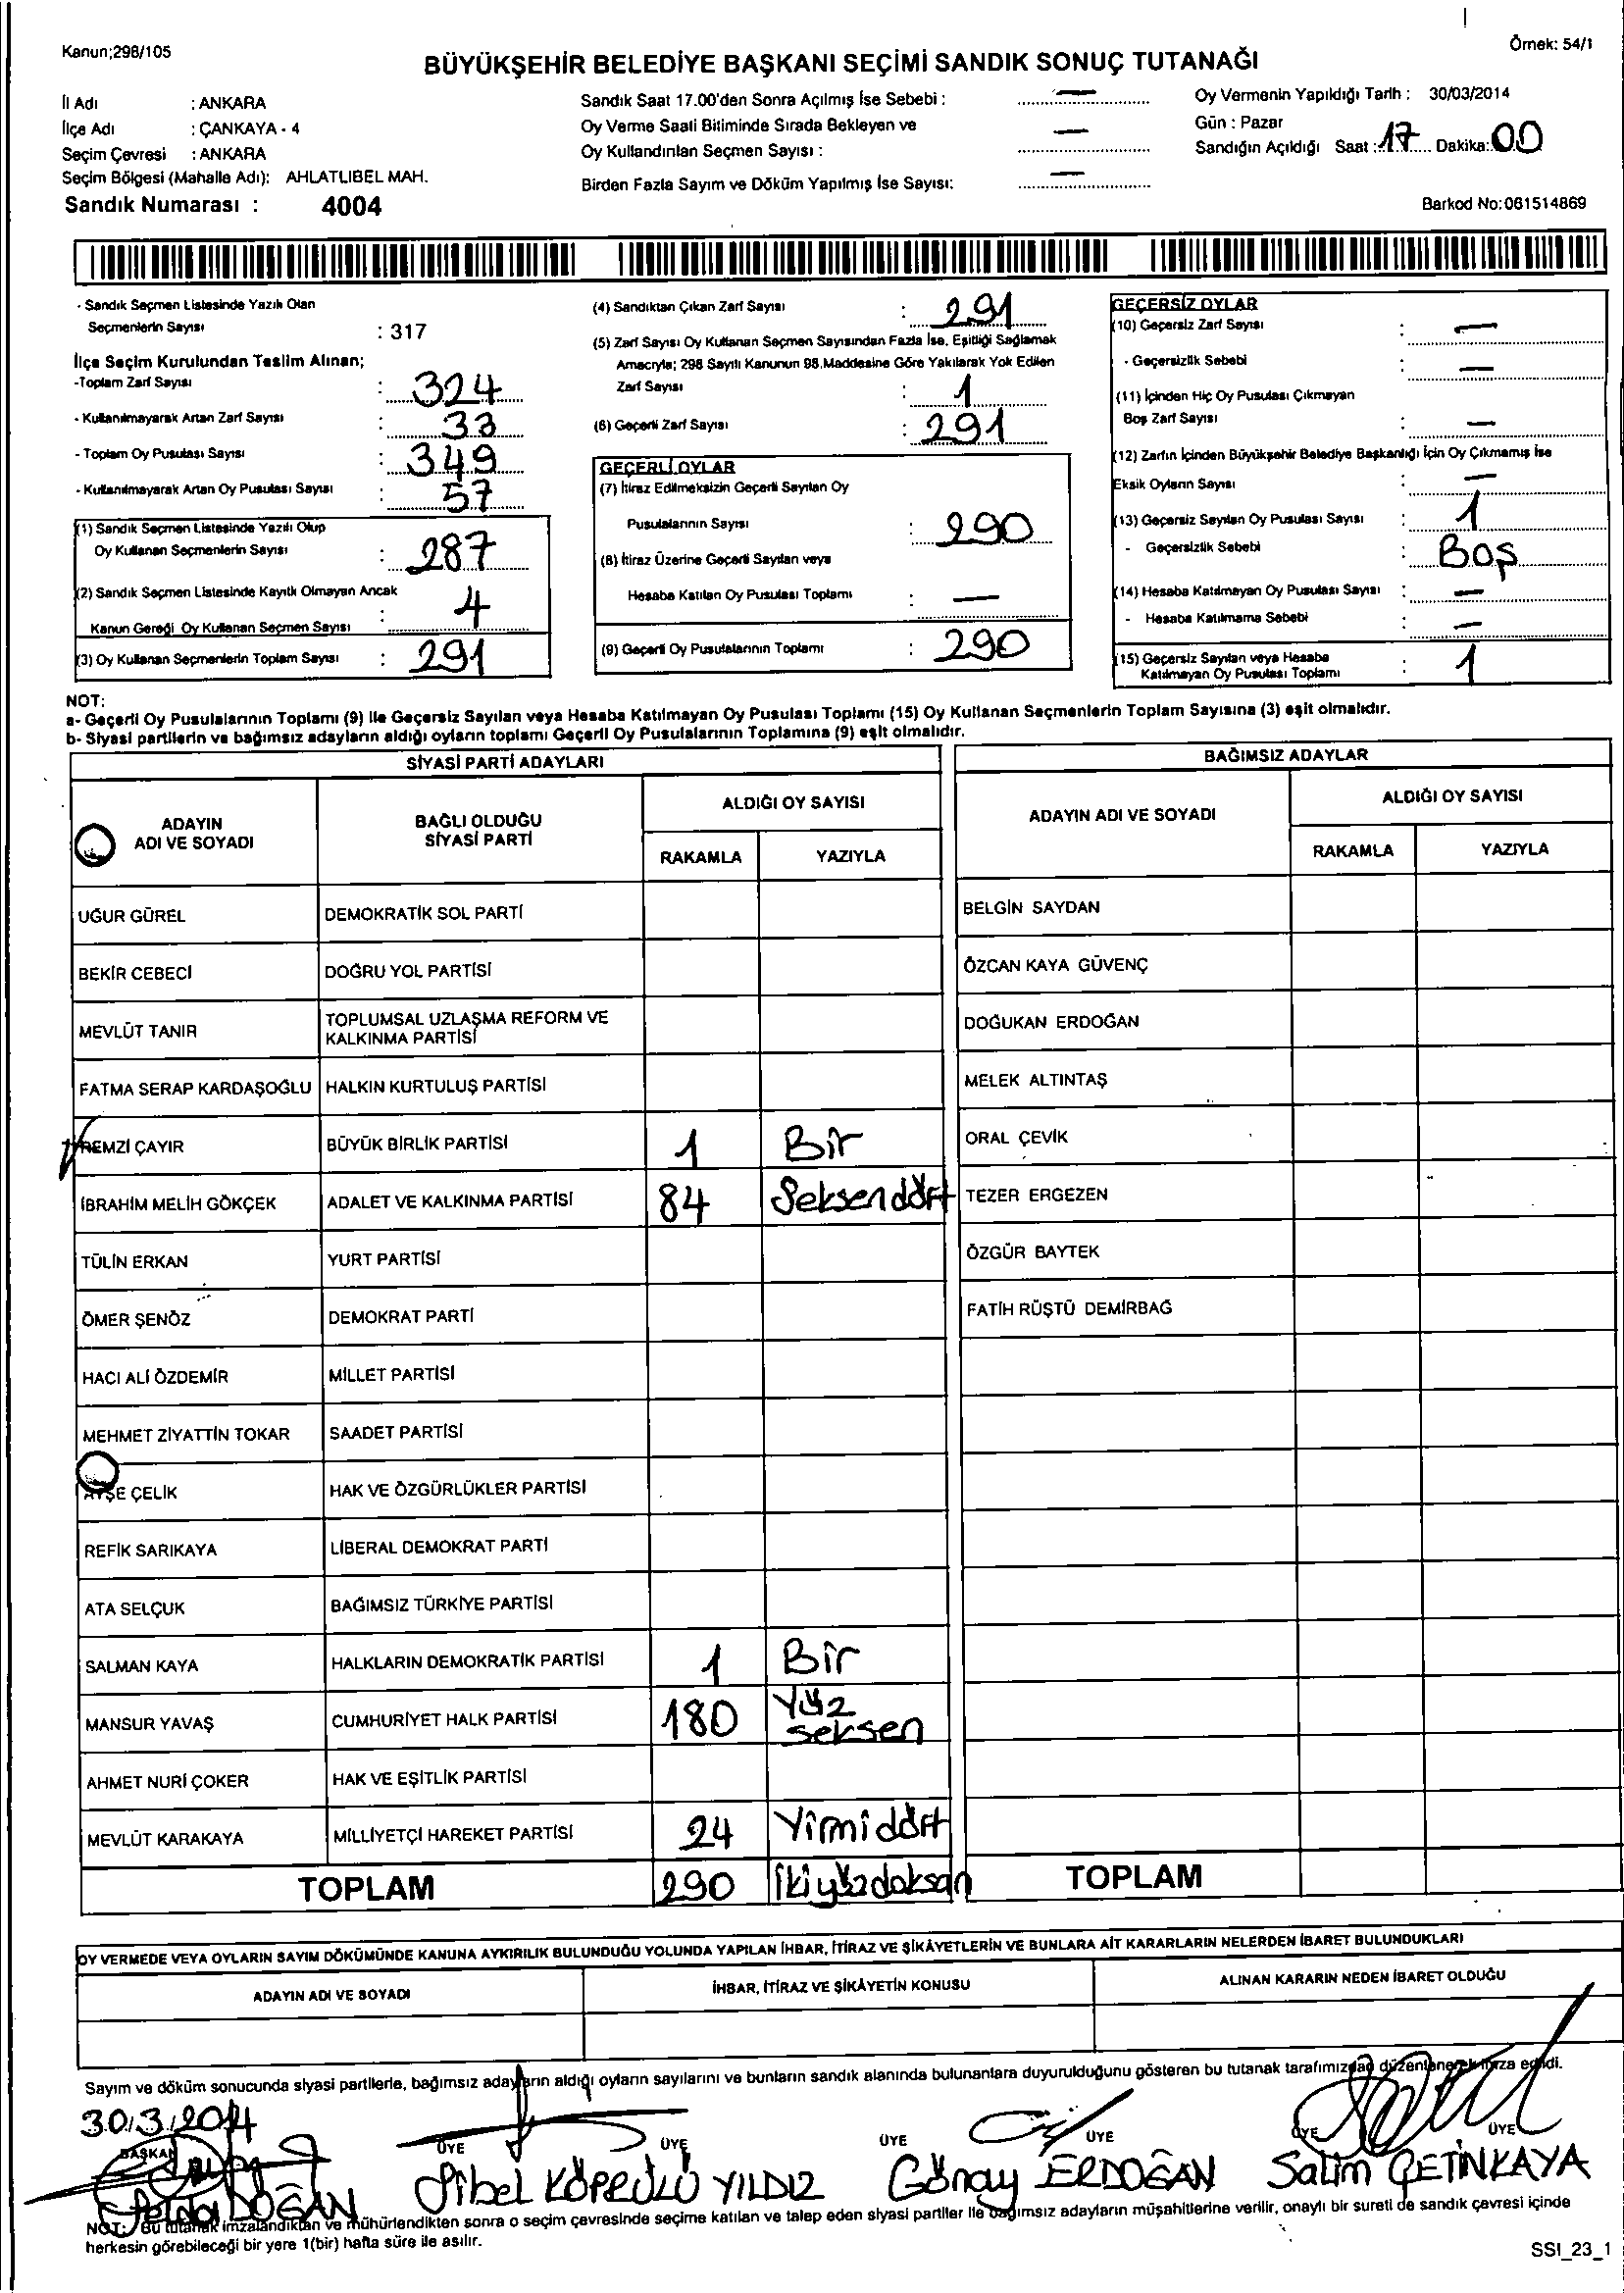 Kanun;298/105
Örnek: 54/1
BÜYÜKŞEHİR BELEDİYE BAŞKANI SEÇİMİ SANDIK SONUÇ TUTANAĞI
İl Adı : ANKARA
İlçe Adı : ÇANKAYA - 4
Seçim Çevresi : ANKARA
Seçim Bölgesi (Mahalle Adı): AHLATLIBEL MAH.
Sandık Numarası : 4004
Sandık Saat 17.00'den Sonra Açılmış İse Sebebi : —
Oy Verme Saati Bitiminde Sırada Bekleyen ve
Oy Kullandırılan Seçmen Sayısı : —
Birden Fazla Sayım ve Döküm Yapılmış İse Sayısı: —
Oy Vermenin Yapıldığı Tarih : 30/03/2014
Gün : Pazar
Sandığın Açıldığı Saat : 17 Dakika: 00
Barkod No:061514869
- Sandık Seçmen Listesinde Yazılı Olan
Seçmenlerin Sayısı : 317
İlçe Seçim Kurulundan Teslim Alınan;
-Toplam Zarf Sayısı : 324
- Kullanılmayarak Artan Zarf Sayısı : 33
- Toplam Oy Pusulası Sayısı : 349
- Kullanılmayarak Artan Oy Pusulası Sayısı : 57
(1) Sandık Seçmen Listesinde Yazılı Olup
Oy Kullanan Seçmenlerin Sayısı : 287
(2) Sandık Seçmen Listesinde Kayıtlı Olmayan Ancak
Kanun Gereği Oy Kullanan Seçmen Sayısı : 4
(3) Oy Kullanan Seçmenlerin Toplam Sayısı : 291
(4) Sandıktan Çıkan Zarf Sayısı : 291
(5) Zarf Sayısı Oy Kullanan Seçmen Sayısından Fazla İse, Eşitliği Sağlamak
Amacıyla; 298 Sayılı Kanunun 98.Maddesine Göre Yakılarak Yok Edilen
Zarf Sayısı : 1
(6) Geçerli Zarf Sayısı : 291
GEÇERLİ OYLAR
(7) İtiraz Edilmeksizin Geçerli Sayılan Oy
Pusulalarının Sayısı : 290
(8) İtiraz Üzerine Geçerli Sayılan veya
Hesaba Katılan Oy Pusulası Toplamı : —
(9) Geçerli Oy Pusulalarının Toplamı : 290
GEÇERSİZ OYLAR
(10) Geçersiz Zarf Sayısı : —
- Geçersizlik Sebebi : —
(11) İçinden Hiç Oy Pusulası Çıkmayan
Boş Zarf Sayısı : —
(12) Zarfın İçinden Büyükşehir Belediye Başkanlığı İçin Oy Çıkmamış İse
Eksik Oyların Sayısı : —
(13) Geçersiz Sayılan Oy Pusulası Sayısı : 1
- Geçersizlik Sebebi : Boş
(14) Hesaba Katılmayan Oy Pusulası Sayısı : —
- Hesaba Katılmama Sebebi : —
(15) Geçersiz Sayılan veya Hesaba
Katılmayan Oy Pusulası Toplamı : 1
NOT:
a- Geçerli Oy Pusulalarının Toplamı (9) ile Geçersiz Sayılan veya Hesaba Katılmayan Oy Pusulası Toplamı (15) Oy Kullanan Seçmenlerin Toplam Sayısına (3) eşit olmalıdır.
b- Siyasi partilerin ve bağımsız adayların aldığı oyların toplamı Geçerli Oy Pusulalarının Toplamına (9) eşit olmalıdır.
SİYASİ PARTİ ADAYLARI
ADAYIN ADI VE SOYADI
BAĞLI OLDUĞU SİYASİ PARTİ
ALDIĞI OY SAYISI
RAKAMLA YAZIYLA
UĞUR GÜREL DEMOKRATİK SOL PARTİ
BEKİR CEBECİ DOĞRU YOL PARTİSİ
MEVLÜT TANIR TOPLUMSAL UZLAŞMA REFORM VE KALKINMA PARTİSİ
FATMA SERAP KARDAŞOĞLU HALKIN KURTULUŞ PARTİSİ
REMZİ ÇAYIR BÜYÜK BİRLİK PARTİSİ 1 Bir
İBRAHİM MELİH GÖKÇEK ADALET VE KALKINMA PARTİSİ 84 Seksendört
TÜLİN ERKAN YURT PARTİSİ
ÖMER ŞENÖZ DEMOKRAT PARTİ
HACI ALİ ÖZDEMİR MİLLET PARTİSİ
MEHMET ZİYATTİN TOKAR SAADET PARTİSİ
AYŞE ÇELİK HAK VE ÖZGÜRLÜKLER PARTİSİ
REFİK SARIKAYA LİBERAL DEMOKRAT PARTİ
ATA SELÇUK BAĞIMSIZ TÜRKİYE PARTİSİ
SALMAN KAYA HALKLARIN DEMOKRATİK PARTİSİ 1 Bir
MANSUR YAVAŞ CUMHURİYET HALK PARTİSİ 180 Yüz seksen
AHMET NURİ ÇOKER HAK VE EŞİTLİK PARTİSİ
MEVLÜT KARAKAYA MİLLİYETÇİ HAREKET PARTİSİ 24 Yirmidört
TOPLAM 290 İkiyüzdoksan
BAĞIMSIZ ADAYLAR
ADAYIN ADI VE SOYADI
ALDIĞI OY SAYISI
RAKAMLA YAZIYLA
BELGİN SAYDAN
ÖZCAN KAYA GÜVENÇ
DOĞUKAN ERDOĞAN
MELEK ALTINTAŞ
ORAL ÇEVİK
TEZER ERGEZEN
ÖZGÜR BAYTEK
FATİH RÜŞTÜ DEMİRBAĞ
TOPLAM
OY VERMEDE VEYA OYLARIN SAYIM DÖKÜMÜNDE KANUNA AYKIRILIK BULUNDUĞU YOLUNDA YAPILAN İHBAR, İTİRAZ VE ŞİKÂYETLERİN VE BUNLARA AİT KARARLARIN NELERDEN İBARET BULUNDUKLARI
ADAYIN ADI VE SOYADI
İHBAR, İTİRAZ VE ŞİKÂYETİN KONUSU
ALINAN KARARIN NEDEN İBARET OLDUĞU
Sayım ve döküm sonucunda siyasi partilerle, bağımsız adayların aldığı oyların sayılarını ve bunların sandık alanında bulunanlara duyurulduğunu gösteren bu tutanak tarafımızdan düzenlenerek imza edildi.
30.3.2014
BAŞKAN ÜYE ÜYE ÜYE ÜYE ÜYE ÜYE
DOĞAN Sibel KÖPRÜLÜ YILDIZ Günay ERDOĞAN Salim ÇETİNKAYA
NOT: Bu tutanak imzalandıktan ve mühürlendikten sonra o seçim çevresinde seçime katılan ve talep eden siyasi partiler ile bağımsız adayların müşahitlerine verilir, onaylı bir sureti de sandık çevresi içinde
herkesin görebileceği bir yere 1(bir) hafta süre ile asılır.
SSI_23_1